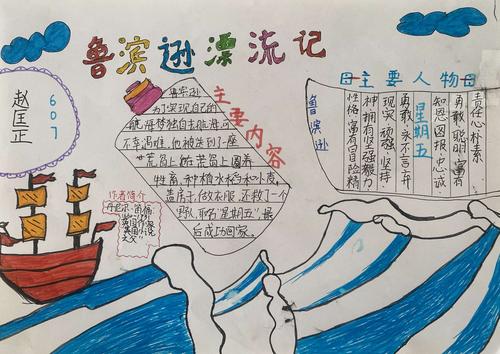 鲁滨逊漂流记
赵匡正
607
主要内容
鲁宾逊
为了实现自己的
航海梦独自去航海，可
不幸遇难，他被刮到了一座
荒岛上，在荒岛上圈养
牲畜，种植水稻和小麦，
盖房子，做衣服，还救了一个
野人，取名“星期五”，最
后成功回家。
作者简介
主要人物
鲁滨逊
性格，富有冒险精
神，拥有坚强毅力
现实，顽强，坚持，
勇敢，永不言弃
星期五
知恩图报，忠诚，
勇敢，聪明，富有
责任心，朴素